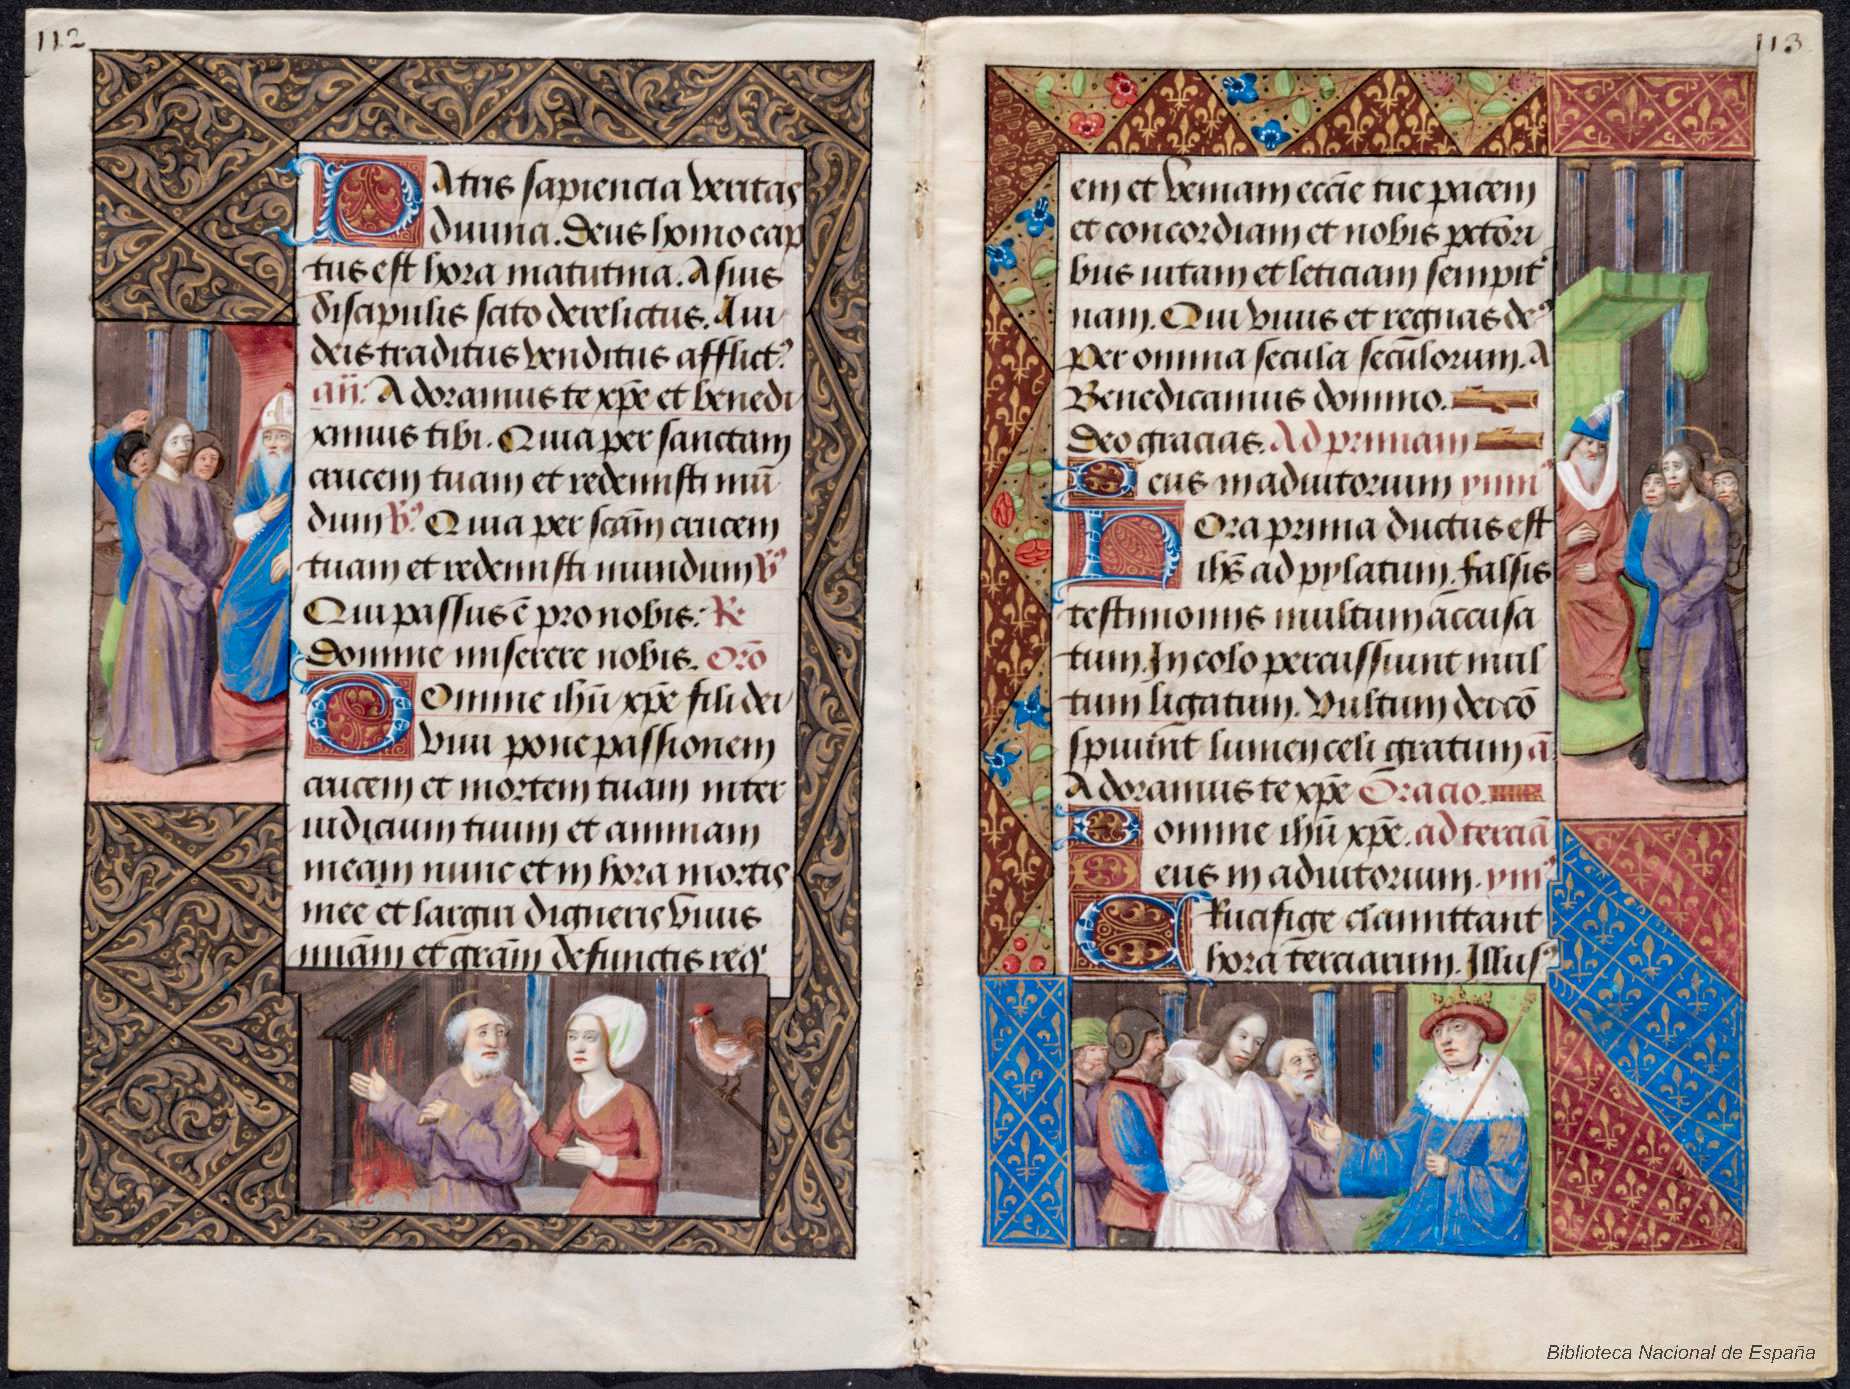 112
Patris sapiencia veritas
diuina. Deus homo cap
tus est hora matutina. A suis
discipulis scito derelictus. A iu
deis traditus venditus afflict9
añ: Adoramus te xp̄e et benedi
ximus tibi. Quia per sanctam
crucem tuam et redemisti mū
dum ℣ Quia per scām crucem
tuam et redemisti mundum ℣
Qui passus ē pro nobis: ℟
Domine miserere nobis. Orō
Domine ihū xp̄e fili dei
viui pone passionem
crucem et mortem tuam inter
iudicium tuum et animam
meam nunc et in hora mortis
mee et largiri digneris viuis
miām et grām defunctis req'
113
em et veniam eccīe tue pacem
et concordiam et nobis pctōri
bus uitam et leticiam sempit'
nam. Qui viuis et regnas de9
Per omnia secula secūlorum. A
Benedicamus domino.
Deo gracias. Ad primam
Deus in adiutorium ymn9
Hora prima ductus est
ihs̄ ad pylatum. falsis
testimoniis multum accusa
tum. In colo percussiunt mul
tum ligatum. Vultum dei cō
spuūnt lumen celi gratum ā
Adoramus te xp̄e Oracio.
Domine ihū xp̄e. ad terciā
Deus in adiutorium. ymn9
Crucifige clamittant
hora terciarum. Illus9
Biblioteca Nacional de España